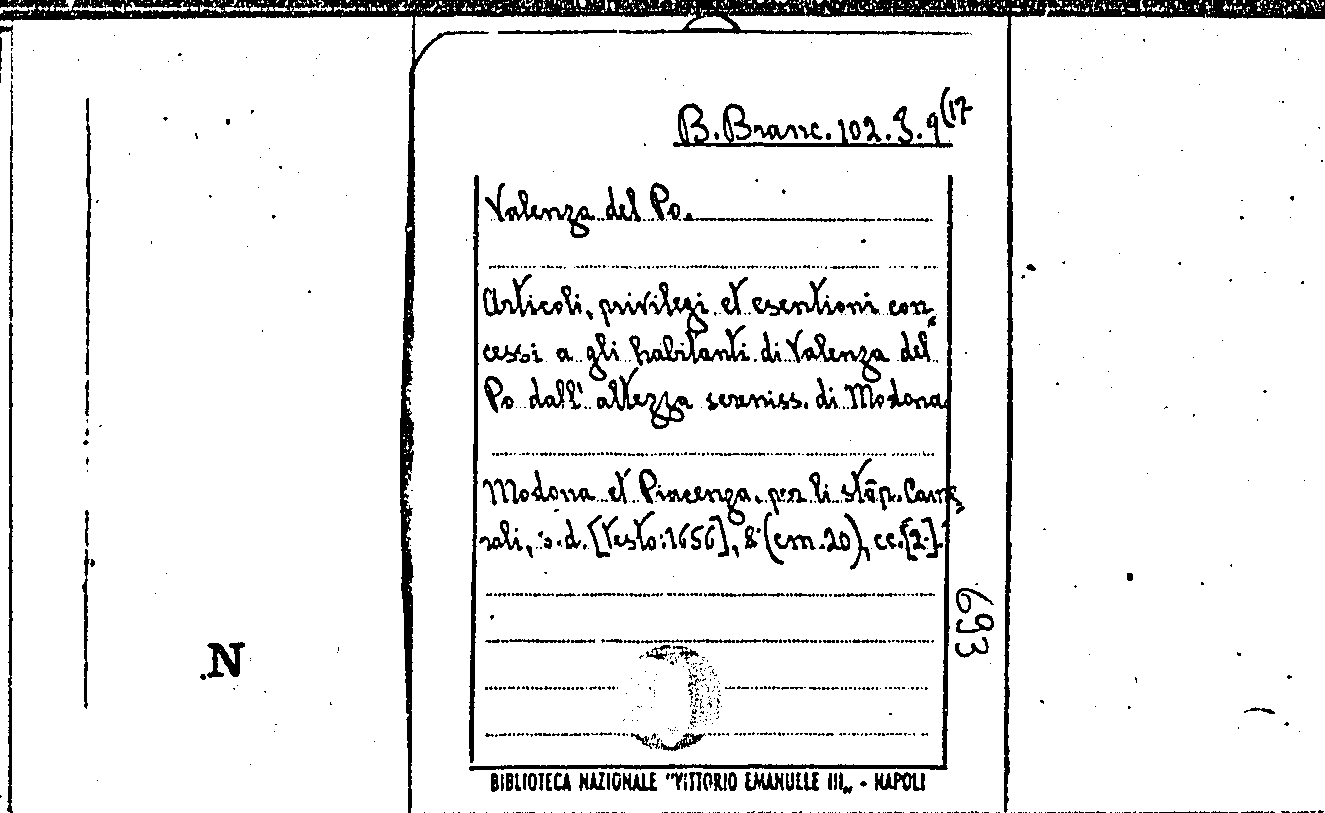 B. Branc. 102. J. 9(17
Valenza del Po.
Articoli, privilegi et esentioni con-
cessi a gli habitanti di Valenza del
Po dall' altezza sereniss. di Modona.
Modona et Piacenza, per li stāp. Came-
rali, s.d. [Testo: 1656], 8° (cm. 20), cc. [2].
693
N
BIBLIOTECA NAZIONALE "VITTORIO EMANUELE III„ - NAPOLI